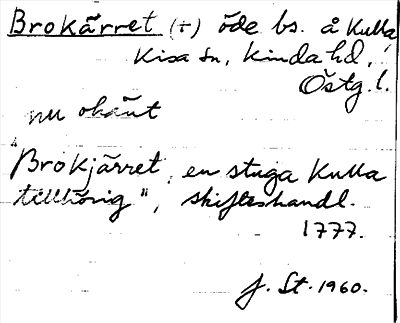 Brokärret (+) öde bs. å Kulla,
Kisa sn, Kinda hd,
Östg. l.
nu okänt
"Brokjärret, en stuga Kulla
tillhörig", skifteshandl.
1777.
J. St. 1960.